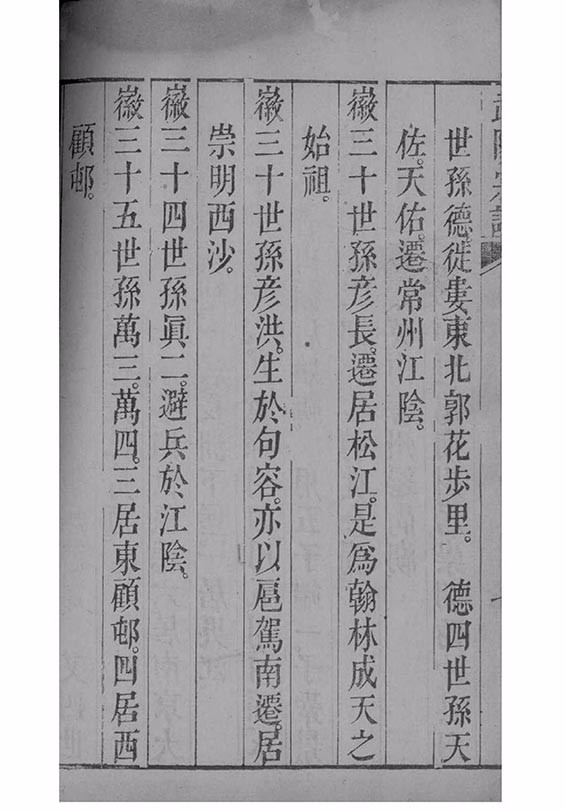 世孫德。徙婁東北郭花步里。　德四世孫天
佐。天佑。遷常州江陰。
徽三十世孫彥長。遷居松江。是爲翰林成天之
始祖。
徽三十世孫彥洪。生於句容。亦以扈駕南遷。居
崇明西沙。
徽三十四世孫眞二。避兵於江陰。
徽三十五世孫萬三。萬四。三居東顧邨。四居西
顧邨。